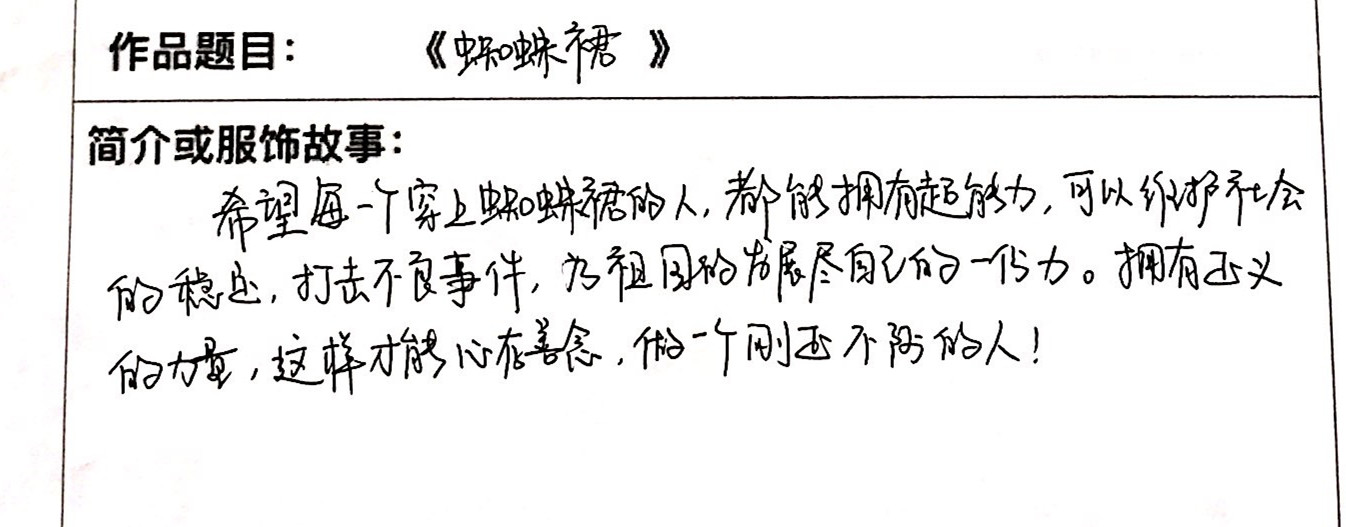 作品题目： 《蜘蛛裙》
简介或服饰故事：
希望每一个穿上蜘蛛裙的人，都能拥有超能力，可以维护社会
的稳定，打击不良事件，为祖国的发展尽自己的一份力。拥有正义
的力量，这样才能心存善念，做一个刚正不阿的人！